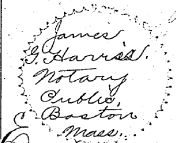 James
G. Harris.
Notary
Public,
Boston
Mass.